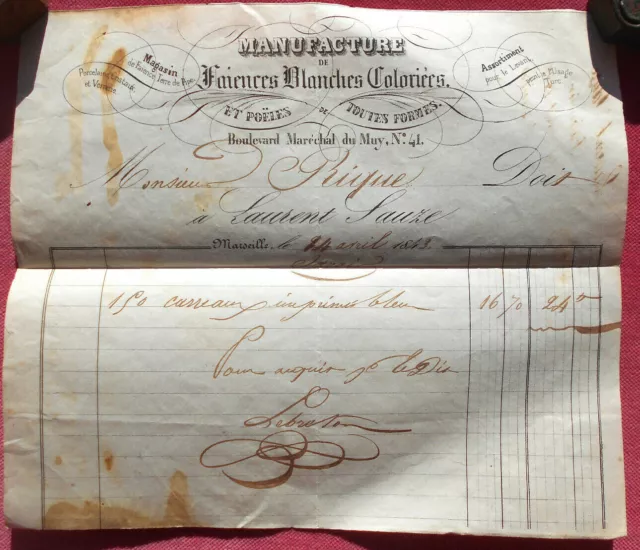 MANUFACTURE
DE
Faïences Blanches Coloriées.
ET POËLES DE TOUTES FORMES.
Magasin
de Faïence, Terre de Pipe,
Porcelaine, Cristaux
et Verrerie
Assortiment
pour le Levant,
Boulevard Maréchal du Muy, N° 41.
Monsieur Rique Doit
à Laurent Sauze
Marseille, le 24 avril 1843
150 carreaux imprimés bleu 16 % 24
Pour acquit le Dit
Lebreton